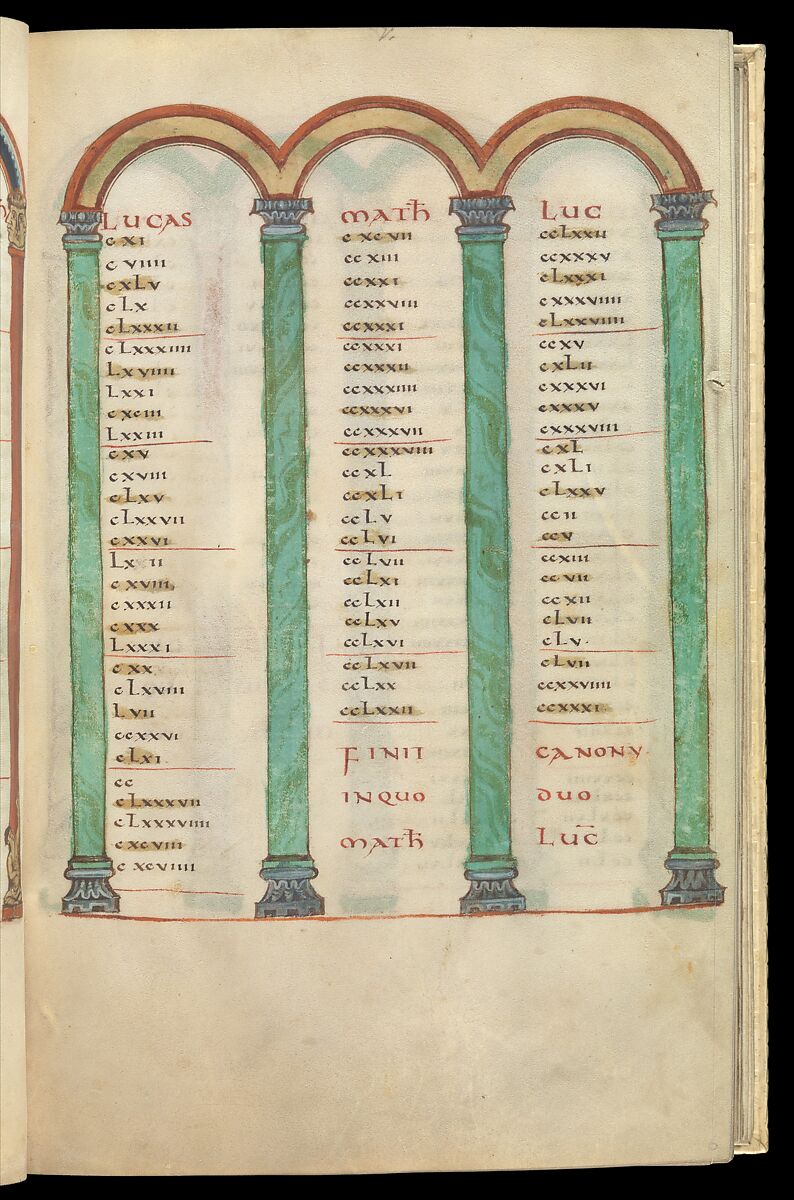 LUCAS
cxi
cviiii
cxLv
cLx
cLxxxii
cLxxxiiii
Lxviiii
Lxxi
cxciii
Lxxiii
cxv
cxviii
cLxv
cLxxvii
cxxvi
cxviii
cxxxii
cxxx
Lxxxi
cxx
cLxviiii
Lvii
ccxxvi
cLxi
cc
cLxxxvii
cLxxxviiii
cxcviii
cxcviiii
MATħ
cxcvii
ccxiii
ccxxi
ccxxviii
ccxxxi
ccxxxi
ccxxxii
ccxxxiiii
ccxxxvi
ccxxxvii
ccxxxviiii
ccxL
ccxLi
ccLv
ccLvi
ccLvii
ccLxi
ccLxii
ccLxv
ccLxvi
ccLxvii
ccLxx
ccLxxii
LUC
ccLxxii
ccxxxv
cLxxxi
cxxxviiii
cLxxviiii
ccxv
cxLii
cxxxvi
cxxxv
cxxxviii
cxL
cxLi
cLxxv
ccii
ccv
ccxiii
ccvii
ccxii
cLvii
cLv
cLvii
ccxxviiii
ccxxxi
FINIT CANONV
INQUO DUO
MATħ LUC̄